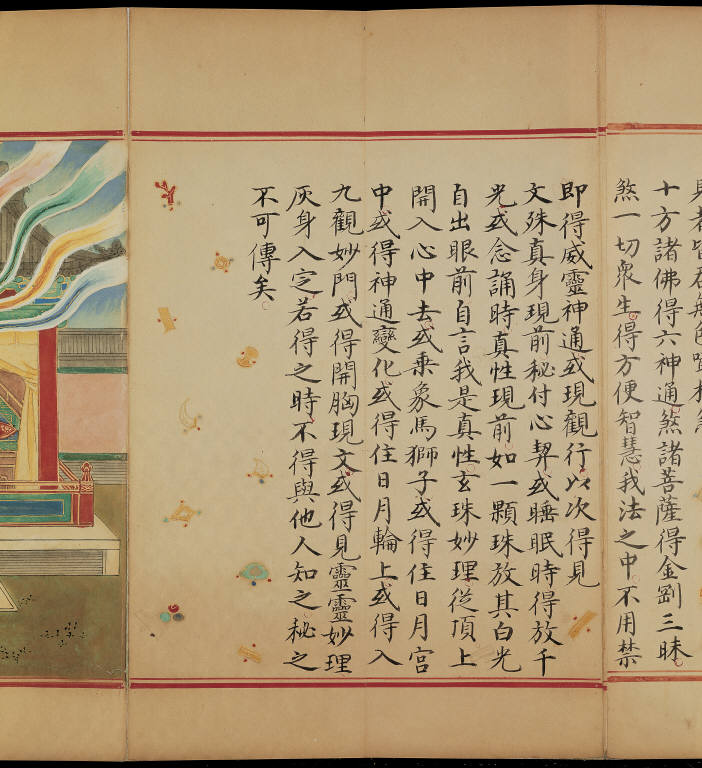 十方諸佛得六神通。煞諸菩薩得金剛三昧。
煞一切衆生。得方便智慧我法之中。不用禁
即得威靈神通或現觀行以次得見
文殊真身現前秘付心契或睡眠時得放千
光或念誦時真性現前如一顆珠放其白光
自出眼前自言我是真性玄珠妙理。從頂上
開入心中去或乘象馬獅子或得住日月宮
中或得神通變化或得住日月輪上或得入
九觀妙門或得開胸現文或得見靈靈妙理
灰身入定若得之時。不得與他人知之秘之
不可傳矣。